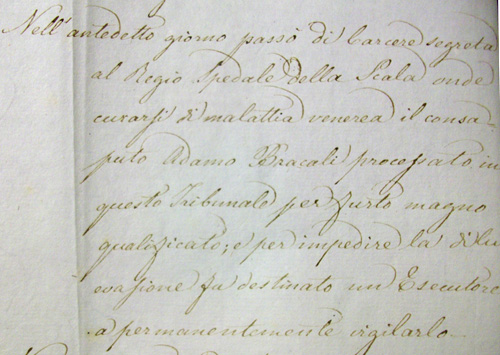 Nell'antedetto giorno passò di Carcere segreta
al Regio Spedale della Scala onde
curarsi di malattia venerea il consa-
puto Adamo Bracali processato in
questo Tribunale per furto magno
qualificato; e per impedire la di lui
evasione fu destinato un Esecutore
a permanentemente vigilarlo.